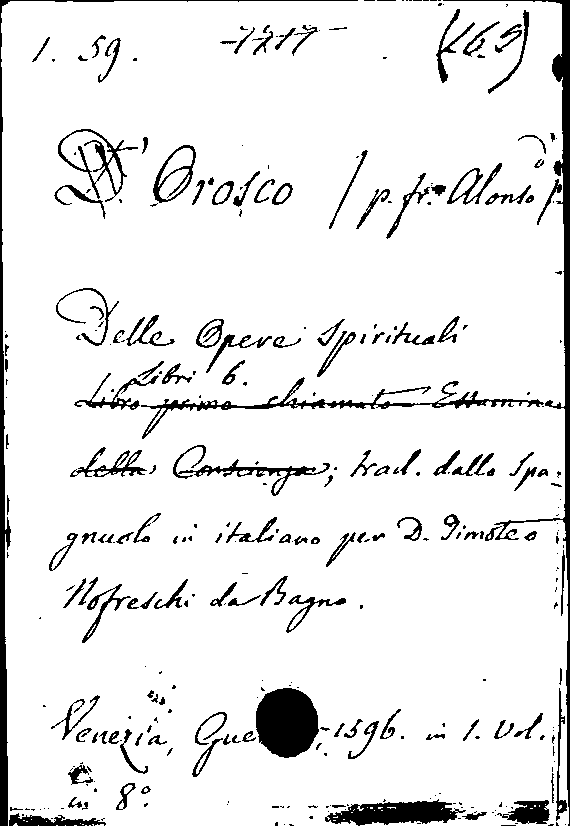 1. 59. 7217 (26.5)
D' Orosco / p. fr. Alonso d' /
Delle Opere Spirituali
Libri 6.
Libro primo chiamato Essamina
della Conscienza; trad. dallo Spa:
gnuolo in italiano per D. Timoteo
Nofreschi da Bagno.
Venezia, Gue , 1596. in 1. Vol.
in 8°